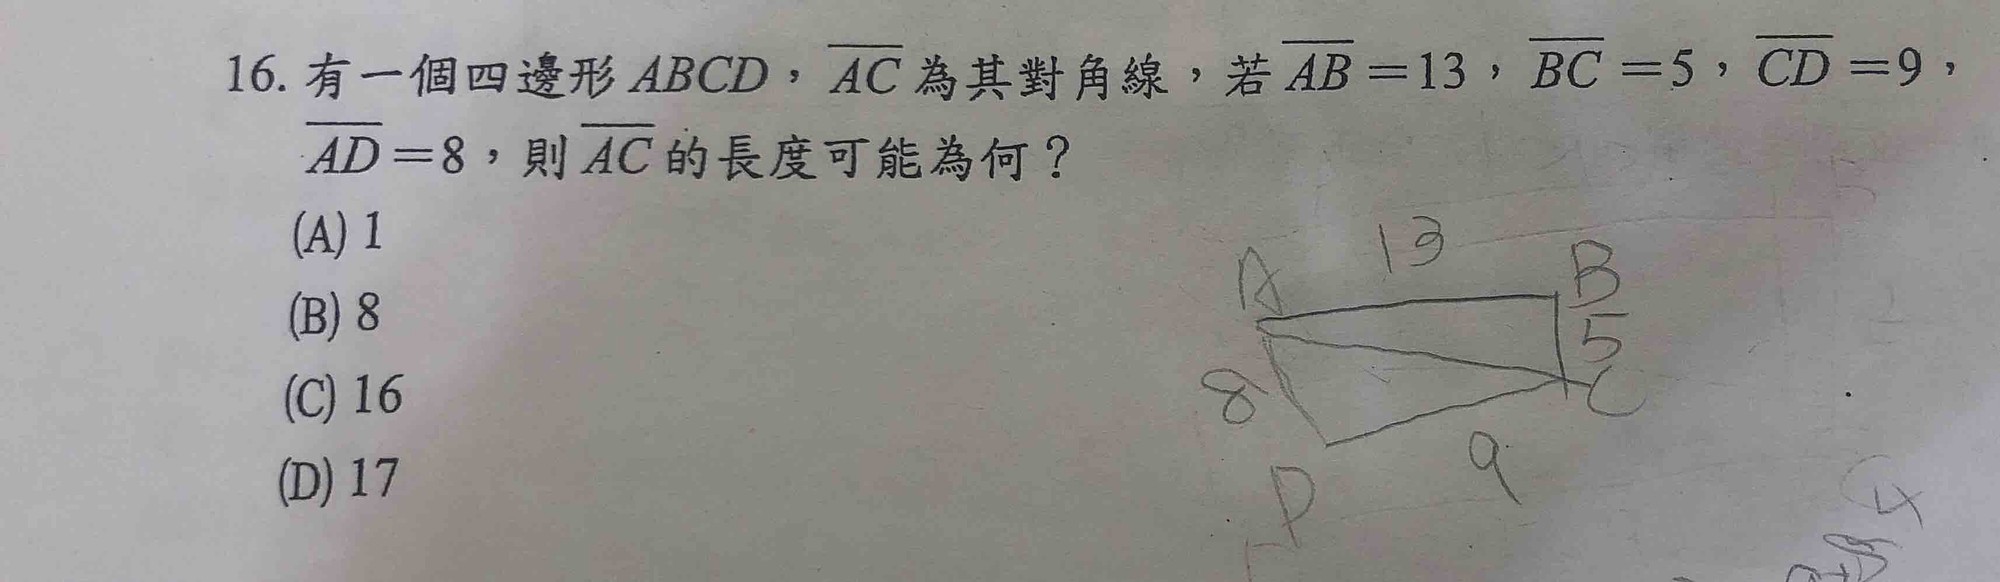 16. 有一個四邊形ABCD，AC為其對角線，若AB=13，BC=5，CD=9，
AD=8，則AC的長度可能為何？
(A) 1
(B) 8
(C) 16
(D) 17
13
A
B
5
8
C
9
D